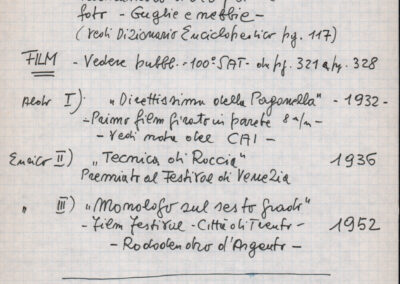 foto - Guglie e nebbie -
(vedi Dizionario Enciclopedico pg. 117)
FILM - Vedere pubbl. - 100° SAT - da pg. 321 a pg. 328
I) "Direttissima della Paganella" - 1932 -
- Primo film girato in parete 8 m/m -
- Vedi nota del CAI -
Enrico II) "Tecnica di Roccia" 1936
Premiato al Festival di Venezia
" III) "Monologo sul sesto grado"
- Film Festival - Città di Trento - 1952
- Rododendro d'Argento -